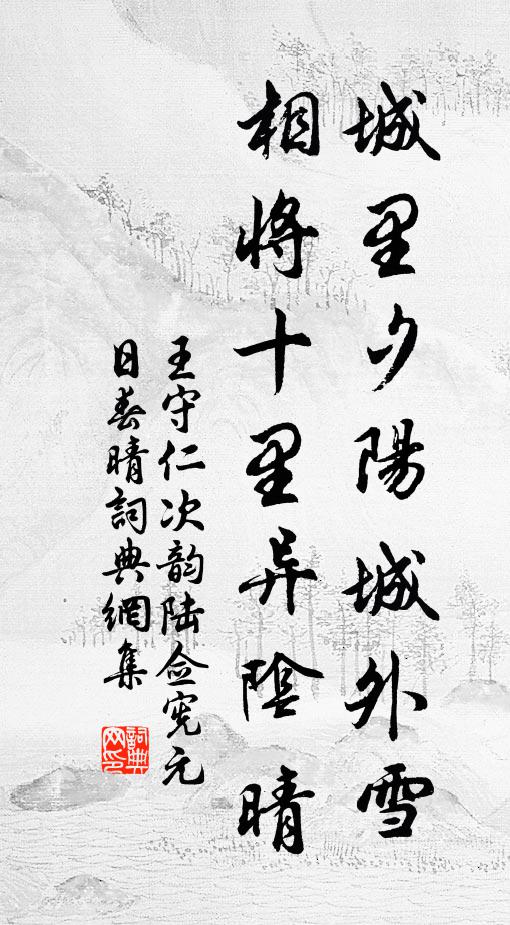 城里夕陽城外雪
相將十里异陰晴
王守仁次韵陆佥宪元
日春晴詞典網集
詞典
网印